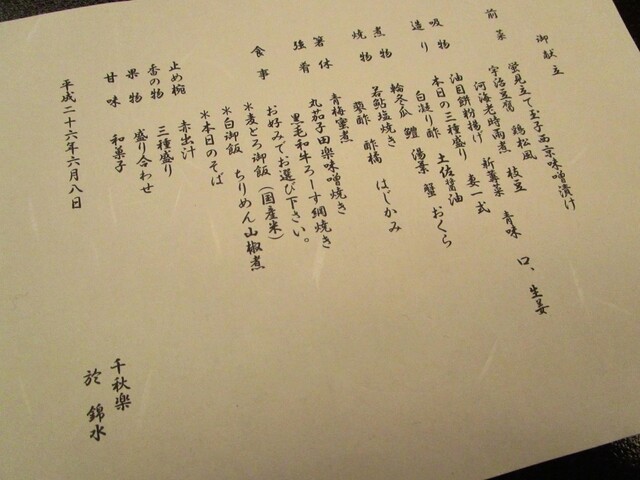 御献立
前菜
蛍見立て玉子西京味噌漬け
宇治豆腐 鶏松風 枝豆 青味 口、生姜
河海老時雨煮 新蓴菜
吸物
油目餅粉揚げ 妻一式
造り
本日の三種盛り 土佐醤油
白凝り酢
煮物
輪冬瓜 鱧 湯葉 蟹 おくら
焼物
若鮎塩焼き はじかみ
蓼酢 酢橘
箸休
青梅蜜煮
強肴
丸茄子田楽味噌焼き
黒毛和牛ろーす網焼き
お好みでお選び下さい。
食事
*麦とろ御飯(国産米)
*白御飯 ちりめん山椒煮
*本日のそば
止め椀 赤出汁
香の物 三種盛り
果物 盛り合わせ
甘味 和菓子
平成二十六年六月八日
千秋楽
於 錦水